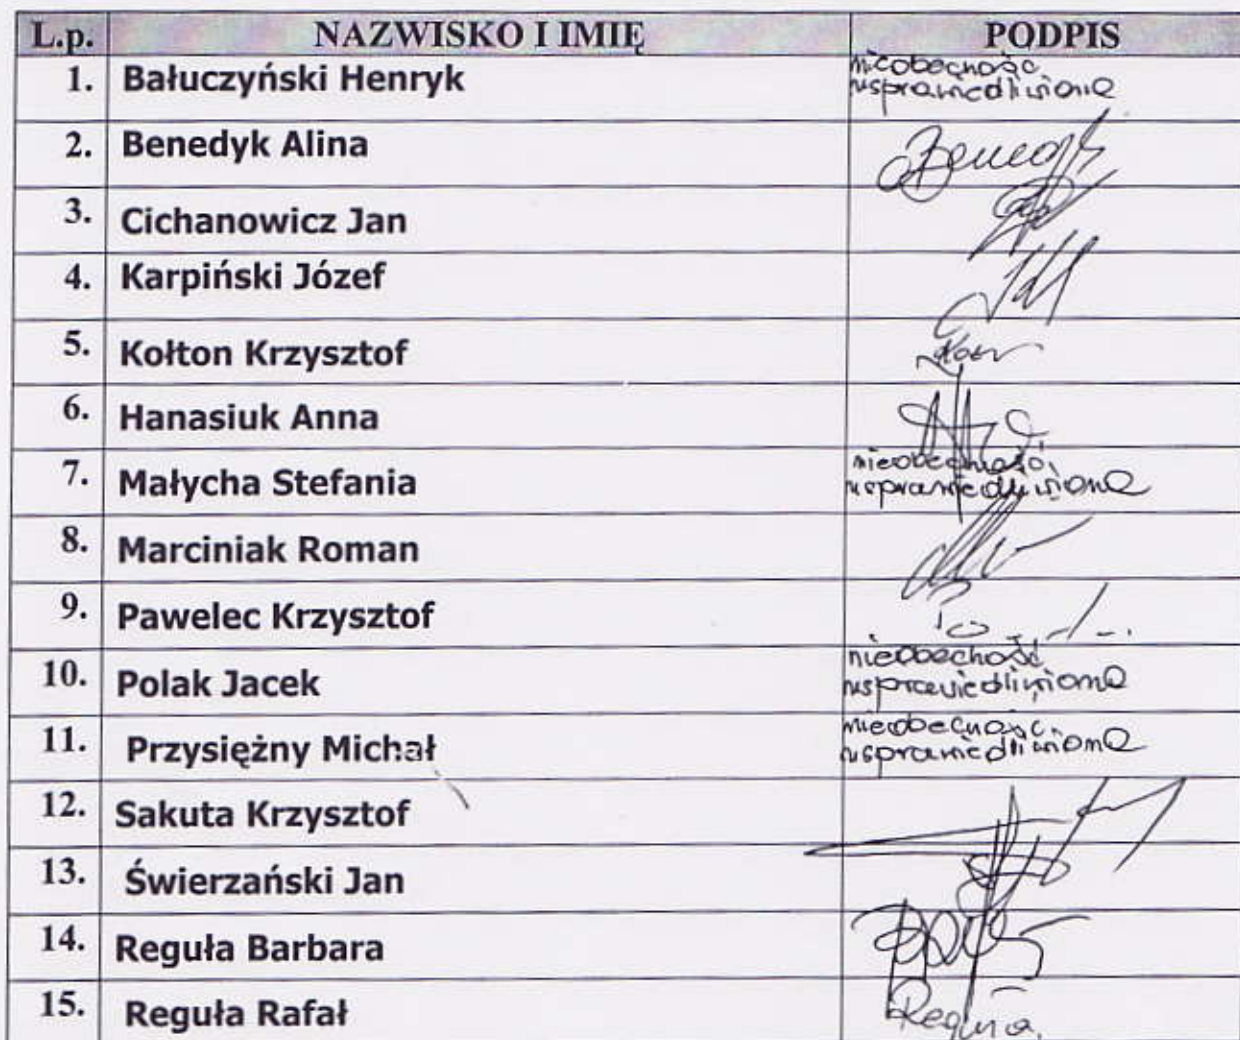 L.p. NAZWISKO I IMIĘ PODPIS
1. Bałuczyński Henryk nieobecność
usprawiedliwiona
2. Benedyk Alina
3. Cichanowicz Jan
4. Karpiński Józef
5. Kołton Krzysztof
6. Hanasiuk Anna
7. Małycha Stefania nieobecność
usprawiedliwiona
8. Marciniak Roman
9. Pawelec Krzysztof
10. Polak Jacek nieobecność
usprawiedliwiona
11. Przysiężny Michał nieobecność
usprawiedliwiona
12. Sakuta Krzysztof
13. Świerzański Jan
14. Reguła Barbara
15. Reguła Rafał